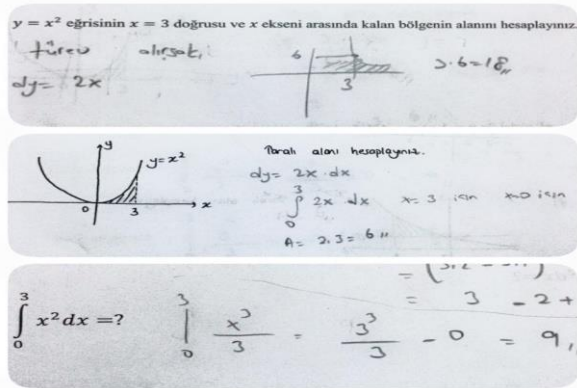 y = x² eğrisinin x = 3 doğrusu ve x ekseni arasında kalan bölgenin alanını hesaplayınız.
türev alırsak,
dy = 2x
6
3
3.6=18,,
y
y=x²
0 3 x
Taralı alanı hesaplayınız.
dy = 2x . dx
∫₀³ 2x dx x = 3 için x=0 için
A = 2.3 = 6,,
∫₀³ x² dx =?
|₀³ x³/3 = 3³/3 - 0 = 9,
= 3 - 2 +